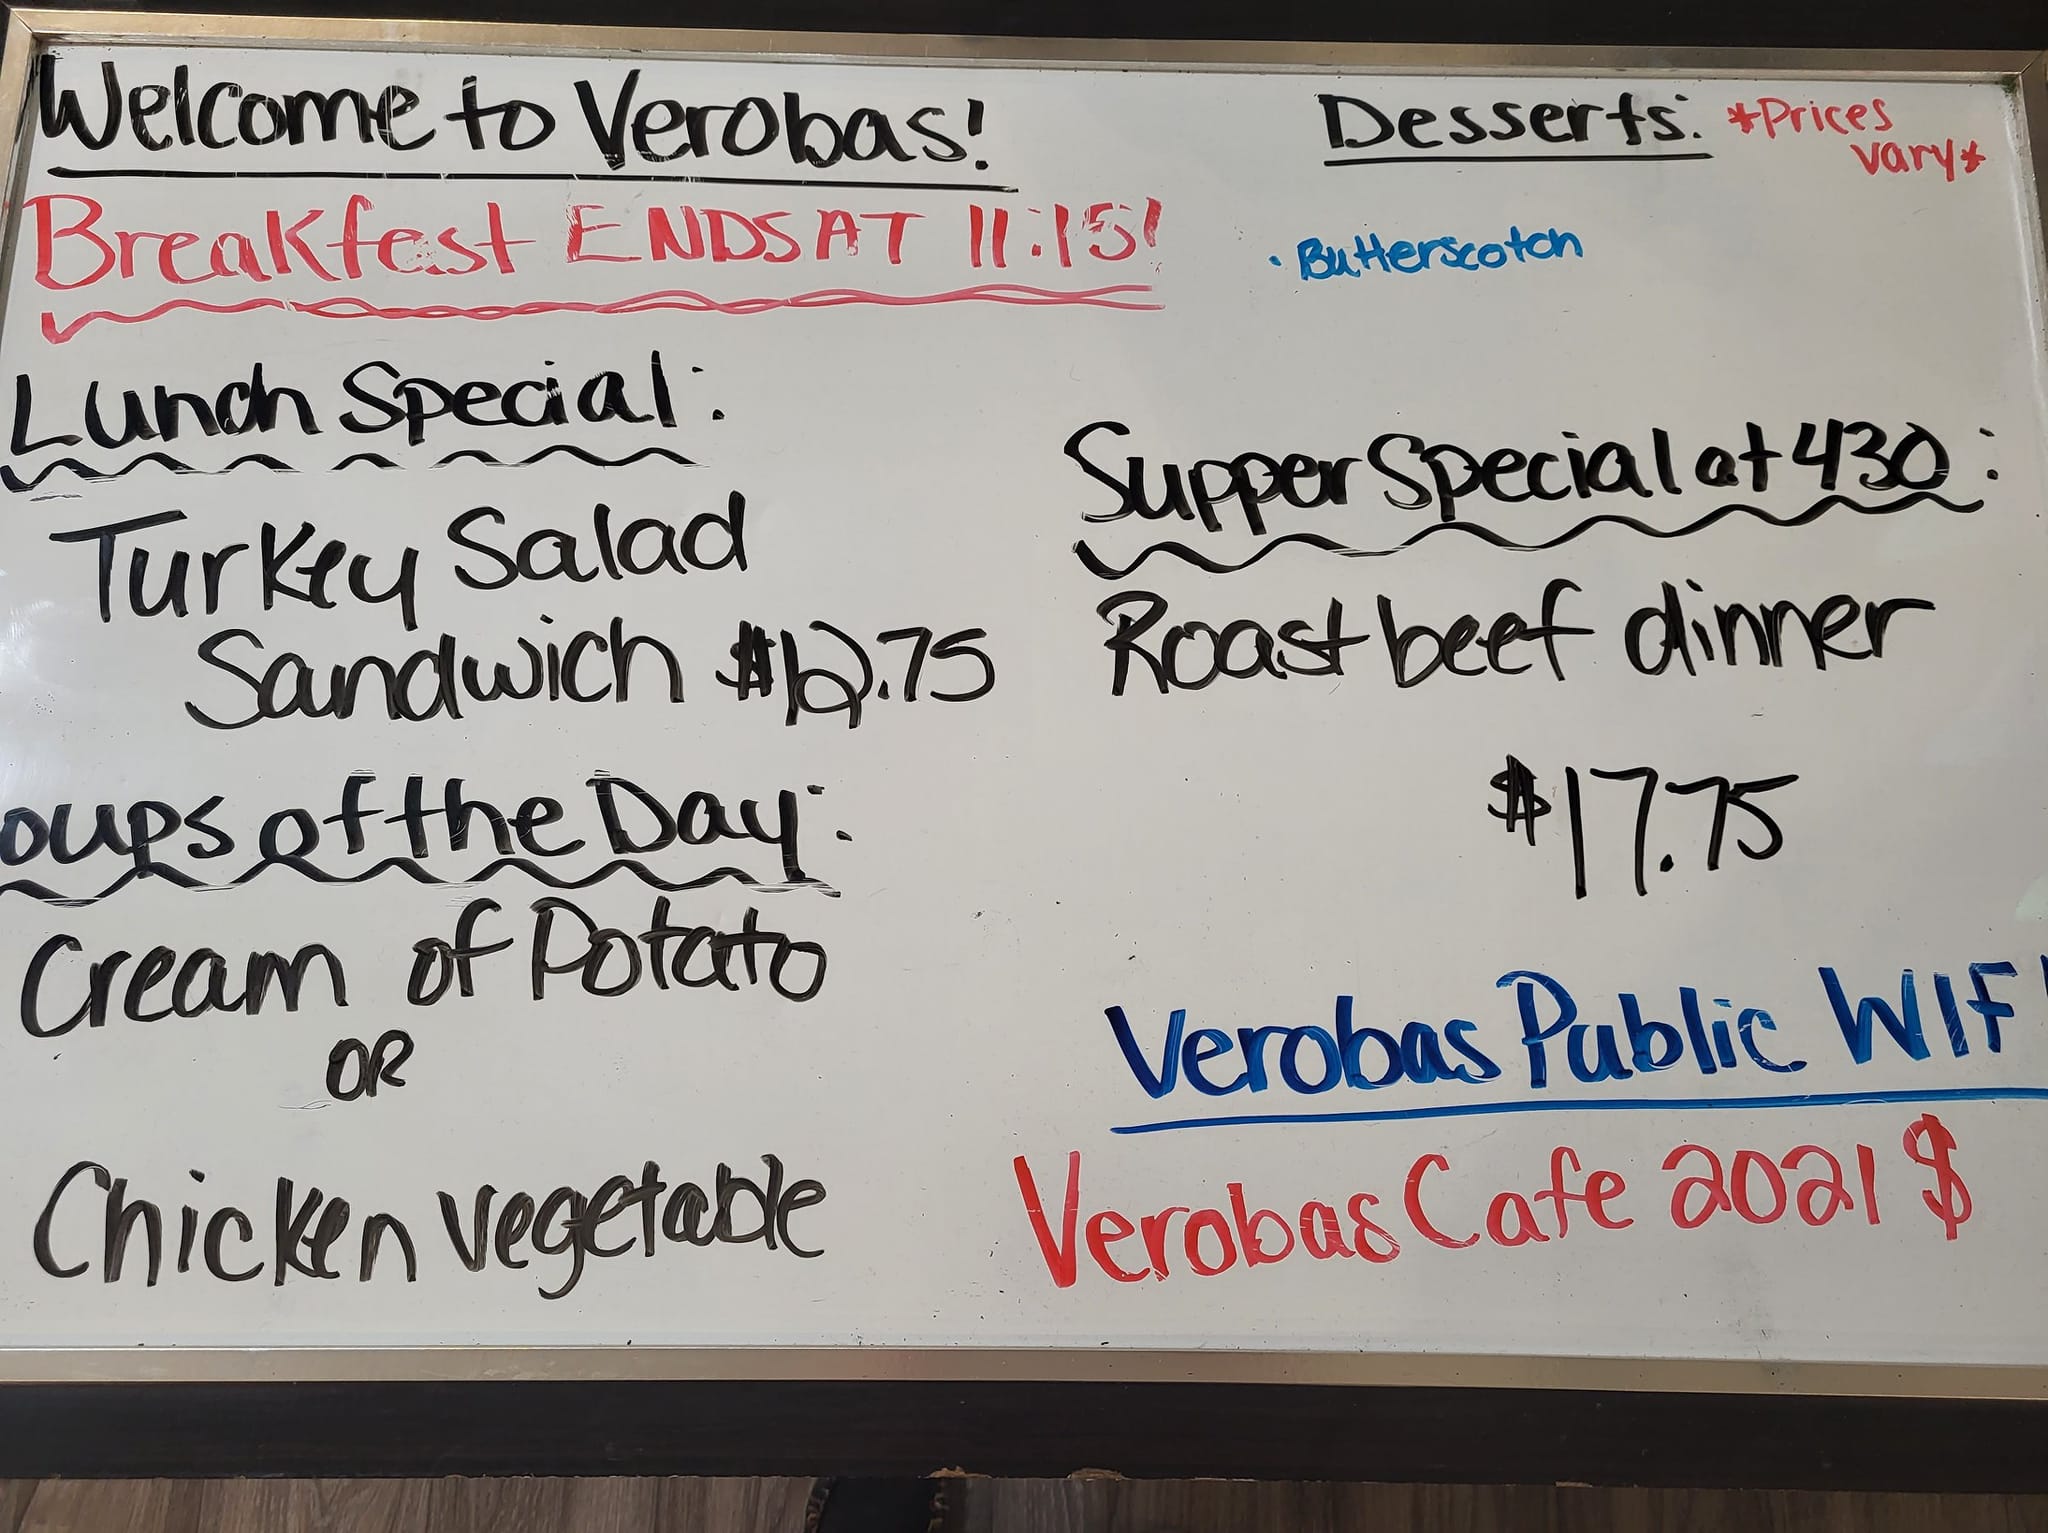 Welcome to Verobas!
Breakfast ENDS AT 11:15!
Lunch Special:
Turkey Salad
Sandwich $12.75
oups of the Day:
Cream of Potato
OR
Chicken vegetable
Desserts: *Prices
vary*
· Butterscotch
Supper Special at 430:
Roast beef dinner
$17.75
Verobas Public WIF
Verobas Cafe 2021 $